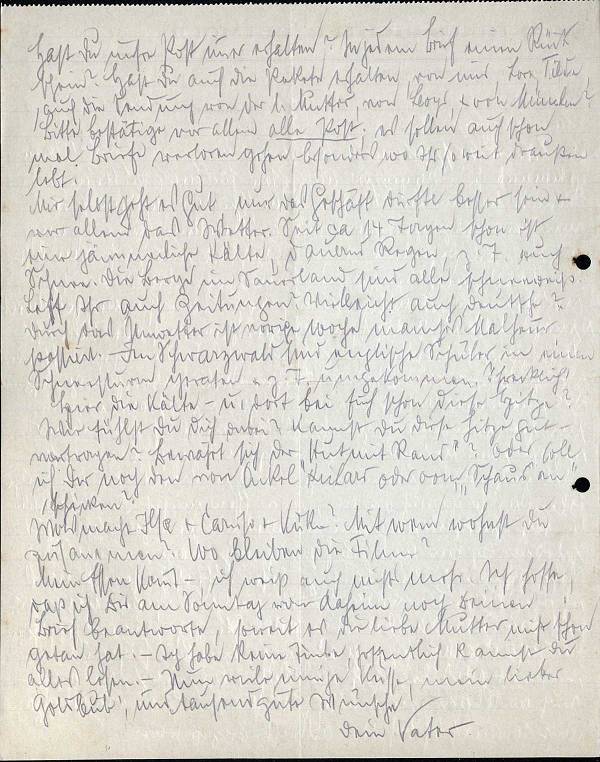 Hast Du unsre Post immer erhalten? In jedem Brief einen Rück-
schein? Hast Du auch die Pakete erhalten von uns
auch die Sendung von der l. Mutter, von + von München?
Bitte bestätige vor allem alle Post, es sollen auch schon
mal Briefe verloren gehen besonders wo Ihr so weit draußen
lebt.
Mir selbst geht es gut nur das Geschäft dürfte besser sein +
vor allem das Wetter. Seit ca 14 Tagen schon ist
eine jämmerliche Kälte, dauernd Regen, z. T. auch
Schnee. Die Berge im Sauerland sind alle schneeweiß.
Lest Ihr auch Zeitungen? Vielleicht auch deutsche?
Durch das Unwetter ist vorige Woche manches Malheur
passiert. Im Schwarzwald sind englische Schüler in einen
Schneesturm geraten + z. T. umgekommen. Schrecklich!
Hier die Kälte – u. dort bei Euch schon diese Hitze?
Wie fühlst Du Dich dabei? Kannst Du diese Hitze gut
vertragen? Bewährt sich der "Hut mit Rand"? Oder soll
ich Dir noch den von Onkel oder vom "Schaus" en
schicken?
Was macht Ilse + + ? Mit wem wohnst Du
zusammen? Wo bleiben die Filme?
Mein – ich weiß auch nichts mehr. Ich hoffe,
daß ich bis am Sonntag wieder daheim noch Deinen
Brief beantworte, soweit es die liebe Mutter nicht schon
getan hat. – Ich habe keine Tinte, hoffentlich kannst Du
alles lesen. – Nun viele innige Küsse, mein lieber
Goldbub, und tausend gute Wünsche
Dein Vater.